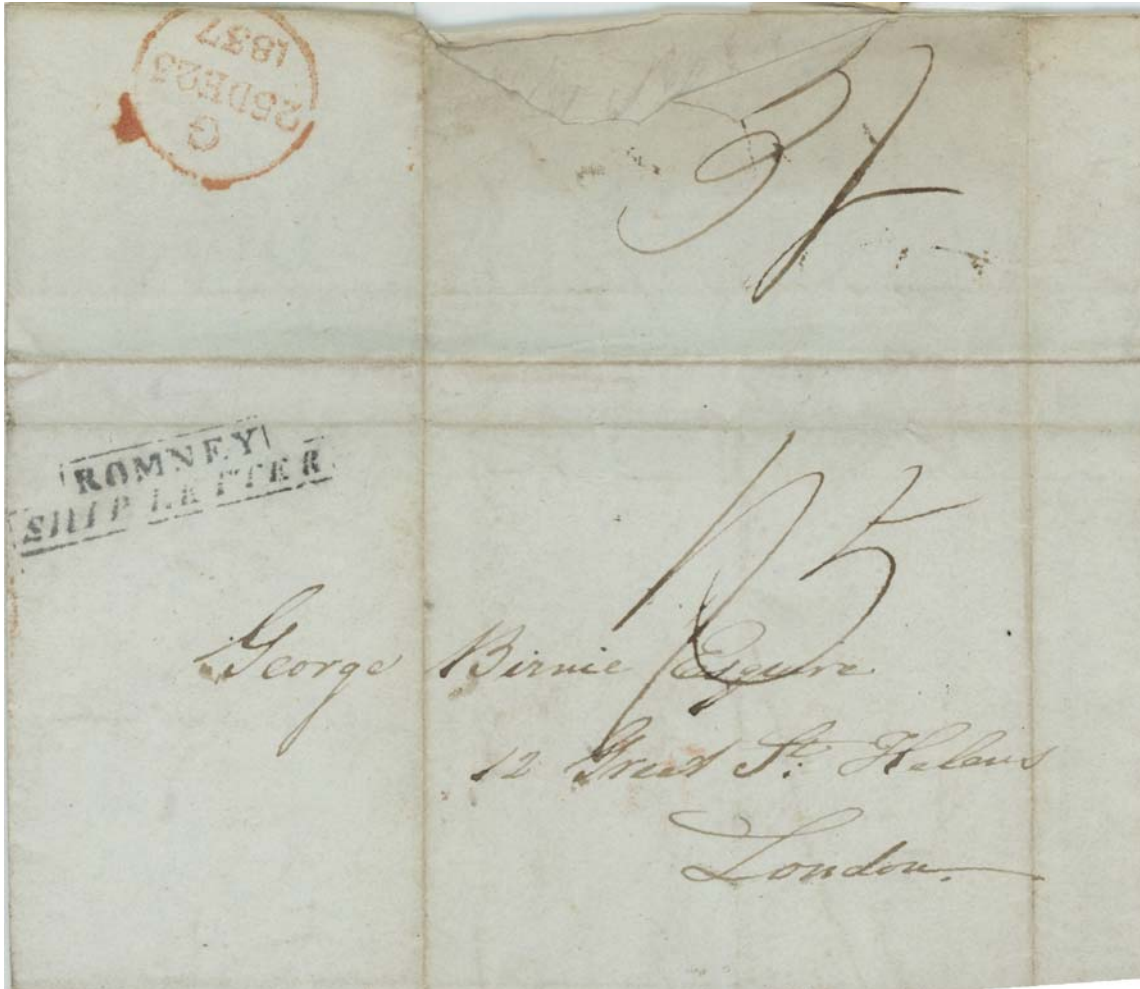 G
25DE25
1837
3/
ROMNEY
SHIP LETTER
1/5
George Birnie Esquire
12 Great St. Helens
London.